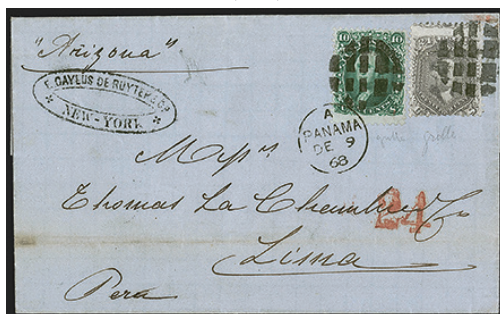 "Arizona"
F. CAYLUS DE RUYTER & Co
NEW-YORK
10 10
A
PANAMA
DE 9
68
Messrs
Thomas La Chambre & Co
24
Lima
Peru